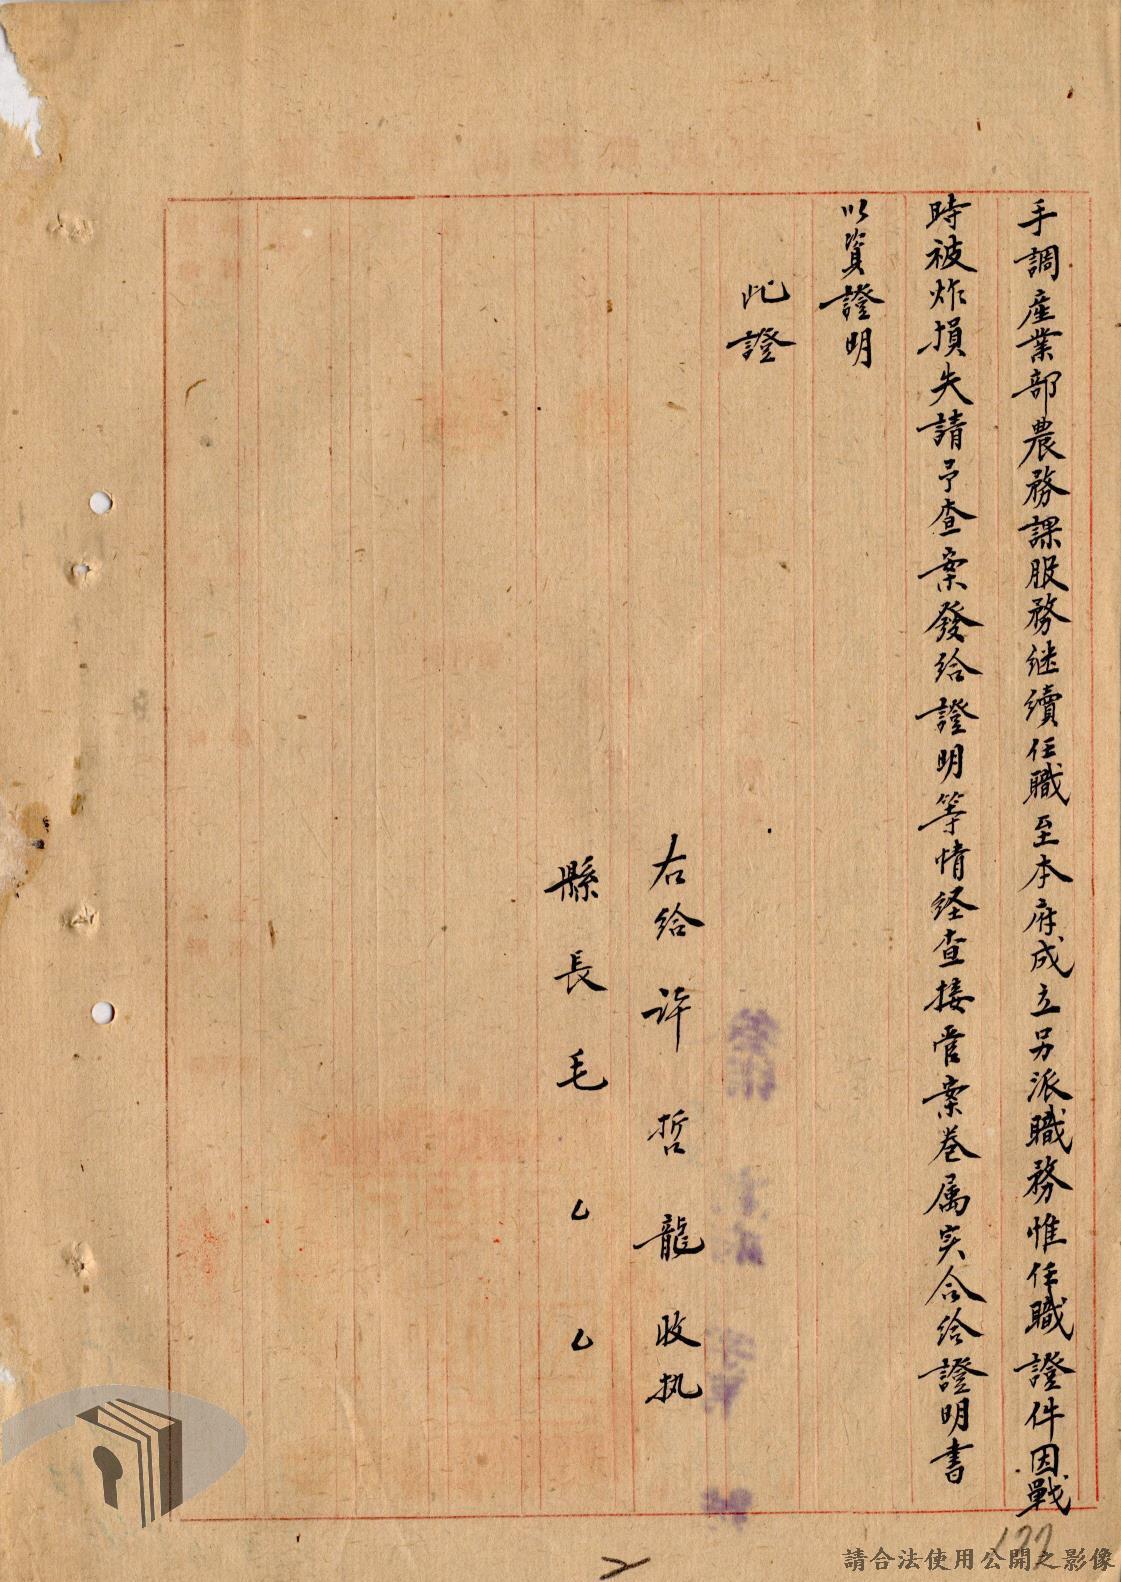 手調産業部農務課服務継續任職至本府成立另派職務惟任職證件因戰
時被炸損失請予查案發給證明等情経查接管案卷属实合給證明書
以資證明
此證
右給許哲龍收执
縣長毛厶厶
請合法使用公開之影像